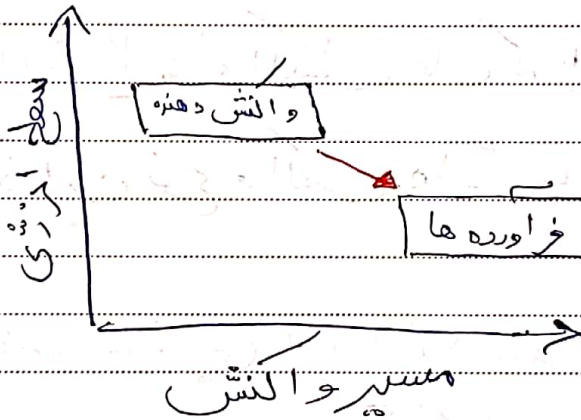 سطح انرژی
واکنش دهنده
فراورده ها
مسیر واکنش